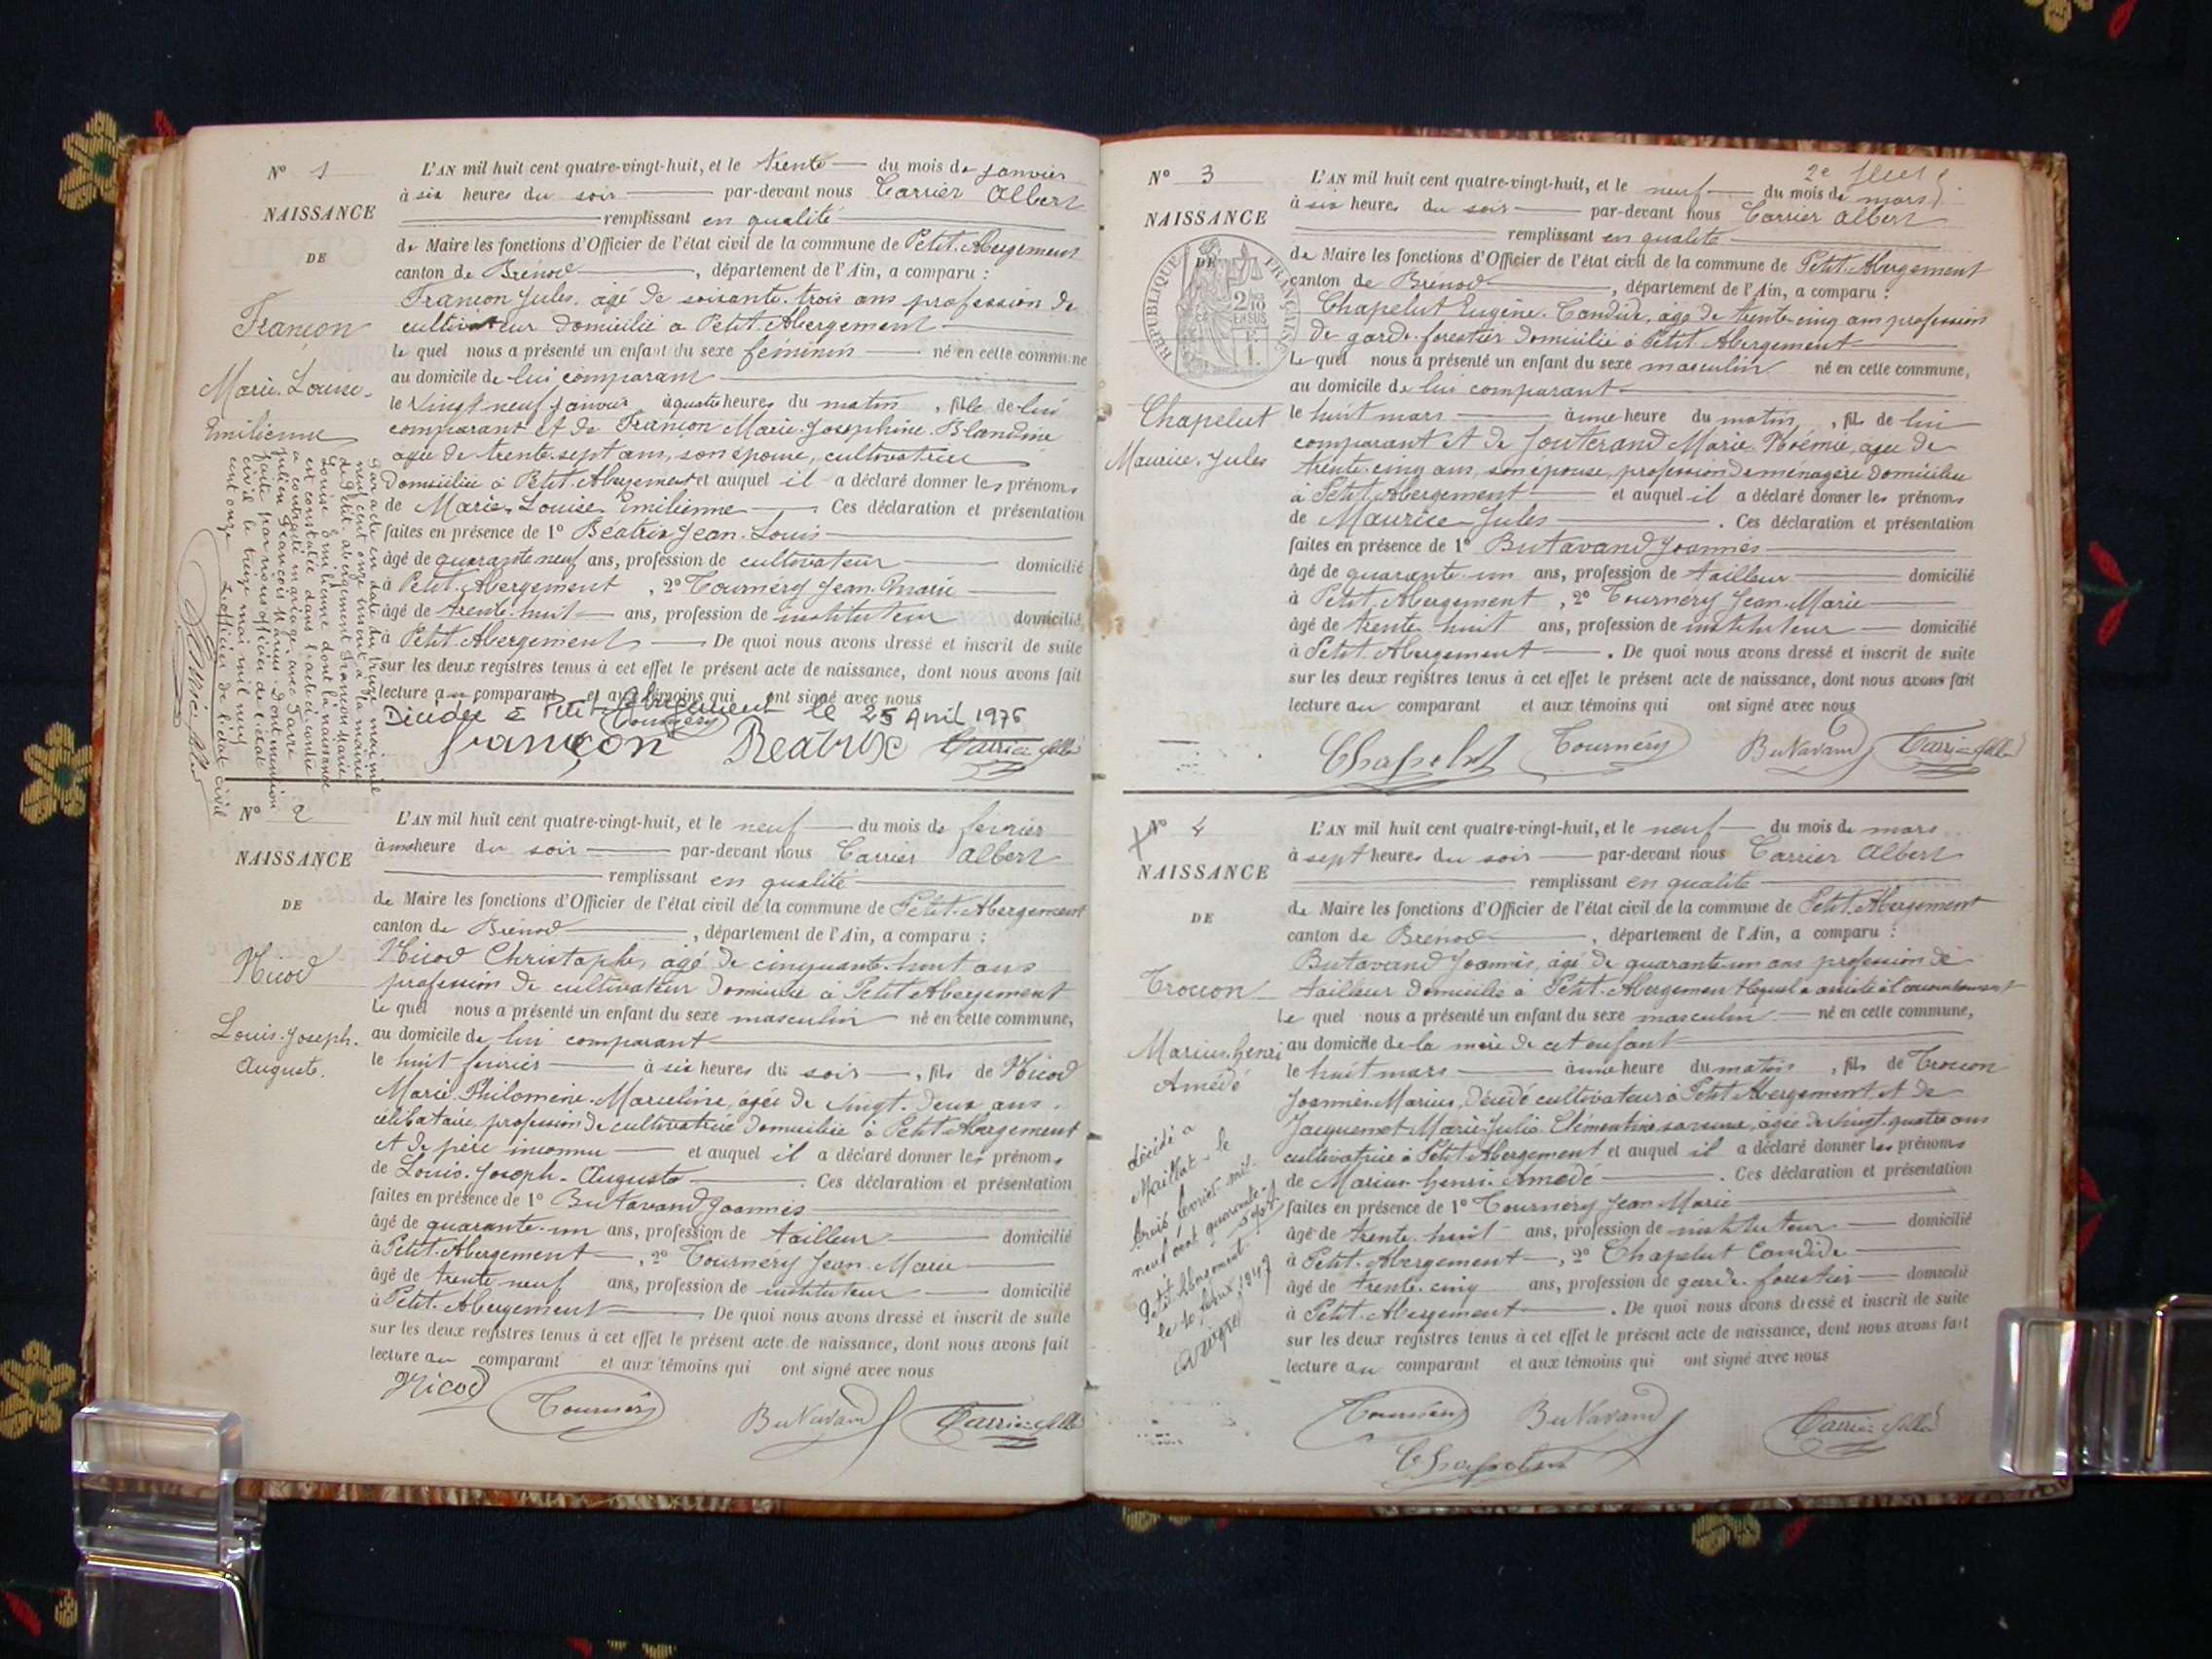 N° 1
NAISSANCE
DE
Françon
Marie-Louise-
Emilienne
L'AN mil huit cent quatre-vingt-huit, et le trente du mois de janvier
à six heures du soir par-devant nous Carrier Albert
remplissant en qualité
de Maire les fonctions d'Officier de l'état civil de la commune de Petit-Abergement
canton de Brénod, département de l'Ain, a comparu :
Françon Jules, âgé de soixante-trois ans profession de
cultivateur domicilié à Petit-Abergement
le quel nous a présenté un enfant du sexe féminin né en cette commune
au domicile de lui comparant
le vingt neuf janvier à quatre heures du matin, fille de lui
comparant et de Françon Marie-Joséphine-Blandine
agée de trente-sept ans, son épouse, cultivatrice
domiciliée à Petit-Abergement et auquel il a déclaré donner les prénoms
de Marie-Louise-Emilienne. Ces déclaration et présentation
faites en présence de 1° Béatrix Jean-Louis
âgé de quarante neuf ans, profession de cultivateur domicilié
à Petit-Abergement, 2° Tournéry Jean-Marie
âgé de trente-huit ans, profession de instituteur domicilié
à Petit-Abergement De quoi nous avons dressé et inscrit de suite
sur les deux registres tenus à cet effet le présent acte de naissance, dont nous avons fait
lecture au comparant et aux témoins qui ont signé avec nous
Décédée à Petit-Abergement le 25 Avril 1976
Tournéry
françon Béatrix Carrier Albert
Par acte en date du treize mai mil
neuf cent onze inscrit à la mairie
de Petit-Abergement Françon Marie
Louise Emilienne dont la naissance
est constatée dans l'acte ci-contre
a contracté mariage avec
Julien François Marius. Dont mention
faite par nous officier de l'état
civil le treize mai mil neuf
cent onze
L'officier de l'état civil
N° 2
NAISSANCE
DE
Nicod
Louis-Joseph-
Auguste.
L'AN mil huit cent quatre-vingt-huit, et le neuf du mois de février
à une heure du soir par-devant nous Carrier Albert
remplissant en qualité
de Maire les fonctions d'Officier de l'état civil de la commune de Petit-Abergement
canton de Brénod, département de l'Ain, a comparu :
Nicod Christophe, âgé de cinquante-huit ans
profession de cultivateur domicilié à Petit Abergement
le quel nous a présenté un enfant du sexe masculin né en cette commune,
au domicile de lui comparant
le huit février à six heures du soir, fils de Nicod
Marie-Philomène-Marceline, âgée de vingt-deux ans,
célibataire, profession de cultivatrice domiciliée à Petit Abergement
et de père inconnu et auquel il a déclaré donner les prénoms
de Louis-Joseph-Auguste. Ces déclaration et présentation
faites en présence de 1° Butavand Joannès
âgé de quarante-un ans, profession de tailleur domicilié
à Petit-Abergement, 2° Tournéry Jean-Marie
âgé de trente-neuf ans, profession de instituteur domicilié
à Petit-Abergement De quoi nous avons dressé et inscrit de suite
sur les deux registres tenus à cet effet le présent acte de naissance, dont nous avons fait
lecture au comparant et aux témoins qui ont signé avec nous
Nicod Tournéry Butavand Carrier Albert
2e
N° 3
NAISSANCE
DE
RÉPUBLIQUE FRANÇAISE
2/10 EN SUS
Chapelut
Maurice-Jules
L'AN mil huit cent quatre-vingt-huit, et le neuf du mois de mars
à six heures du soir par-devant nous Carrier Albert
remplissant en qualité
de Maire les fonctions d'Officier de l'état civil de la commune de Petit-Abergement
canton de Brénod, département de l'Ain, a comparu :
Chapelut Eugène-Candide, âgé de trente-cinq ans profession
de garde-forestier domicilié à Petit-Abergement
le quel nous a présenté un enfant du sexe masculin né en cette commune,
au domicile de lui comparant
le huit mars à une heure du matin, fils de lui
comparant et de Jouterand Marie-Noémie, agée de
trente-cinq ans, son épouse, profession de ménagère domiciliée
à Petit-Abergement et auquel il a déclaré donner les prénoms
de Maurice-Jules. Ces déclaration et présentation
faites en présence de 1° Butavand Joannès
âgé de quarante-un ans, profession de tailleur domicilié
à Petit-Abergement, 2° Tournéry Jean-Marie
âgé de trente-huit ans, profession de instituteur domicilié
à Petit-Abergement. De quoi nous avons dressé et inscrit de suite
sur les deux registres tenus à cet effet le présent acte de naissance, dont nous avons fait
lecture au comparant et aux témoins qui ont signé avec nous
Chapelut Tournéry Butavand Carrier Albert
N° 4
NAISSANCE
DE
Trocon
Marius-henri
Amédé
L'AN mil huit cent quatre-vingt-huit, et le neuf du mois de mars
à sept heures du soir par-devant nous Carrier Albert
remplissant en qualité
de Maire les fonctions d'Officier de l'état civil de la commune de Petit-Abergement
canton de Brénod, département de l'Ain, a comparu :
Butavand Joannès, âgé de quarante-un ans profession de
tailleur domicilié à Petit-Abergement lequel a assisté à l'accouchement
le quel nous a présenté un enfant du sexe masculin né en cette commune,
au domicile de la mère de cet enfant
le huit mars à une heure du matin, fils de Trocon
Joannès-Marius, décédé cultivateur à Petit Abergement et de
Jacquemet Marie-Julie-Clémentine sa veuve, âgée de vingt-quatre ans
cultivatrice à Petit Abergement et auquel il a déclaré donner les prénoms
de Marius-henri-Amédé. Ces déclaration et présentation
faites en présence de 1° Tournéry Jean-Marie
âgé de trente-huit ans, profession de instituteur domicilié
à Petit-Abergement, 2° Chapelut Candide
âgé de trente-cinq ans, profession de garde-forestier domicilié
à Petit-Abergement. De quoi nous avons dressé et inscrit de suite
sur les deux registres tenus à cet effet le présent acte de naissance, dont nous avons fait
lecture au comparant et aux témoins qui ont signé avec nous
Tournéry Butavand Carrier Albert
Chapelut
décédé à
Maillat le
trois février mil
neuf cent quarante-
sept
Petit Abergement
le 10 1947